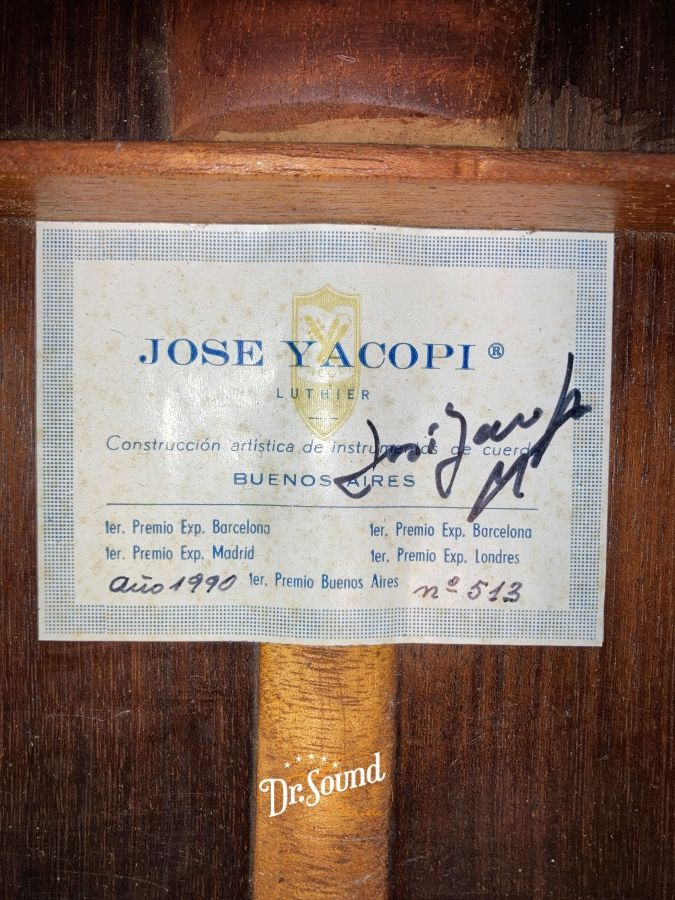 JOSE YACOPI ®
LUTHIER
Construcción artística de instrumentos de cuerda
José Yacopi
BUENOS AIRES
1er. Premio Exp. Barcelona 1er. Premio Exp. Barcelona
1er. Premio Exp. Madrid 1er. Premio Exp. Londres
Año 1990 1er. Premio Buenos Aires nº 513
Dr. Sound